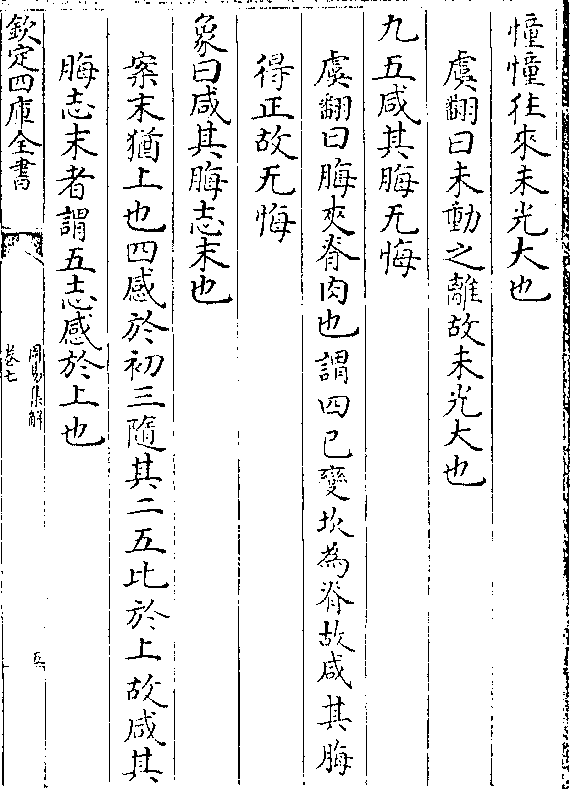 憧憧往來未光大也
虞翻曰未動之離故未光大也
九五咸其脢无悔
虞翻曰脢夾脊肉也謂四已變坎為脊故咸其脢
得正故无悔
象曰咸其脢志末也
案末猶上也四感於初三隨其二五比於上故咸其
脢志末者謂五志感於上也
欽定四庫全書
周易集解
卷七